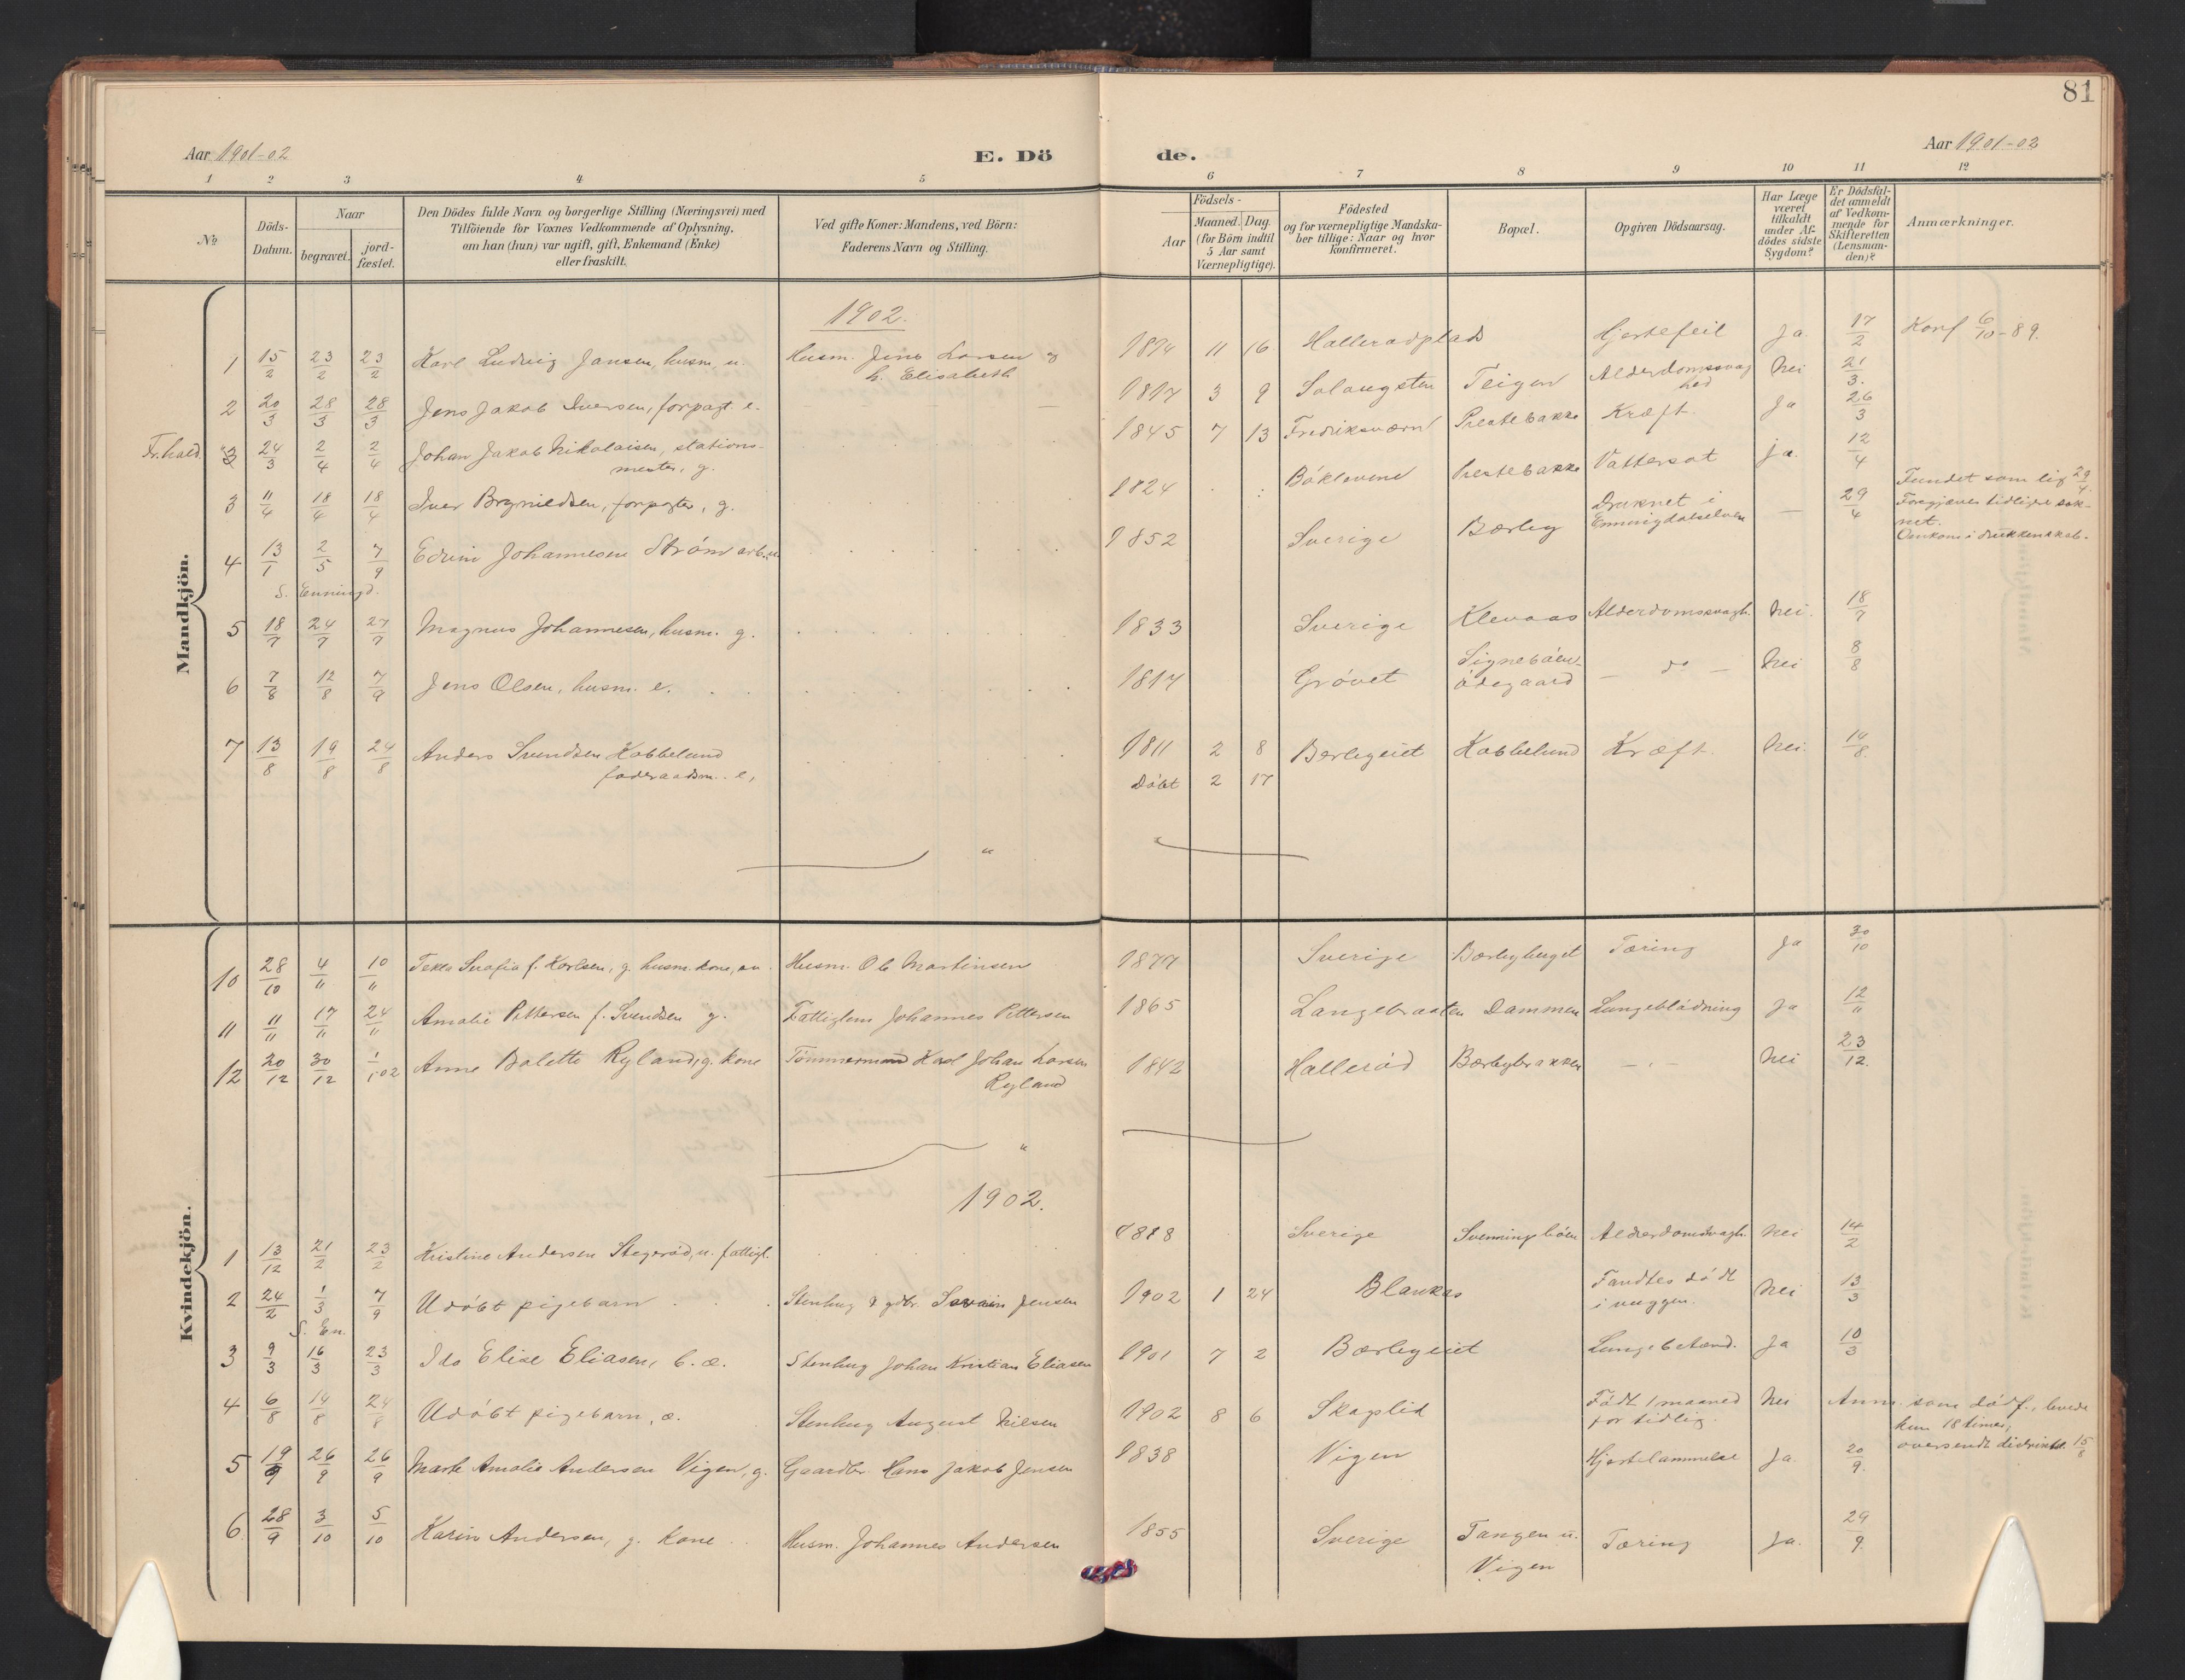 81
Aar 1901-02
E. Döde.
Aar 1901-02
1 2 3 4 5 6 7 8 9 10 11 12
№
Döds-Datum.
Naar begravet. jordfæstet.
Den Dödes fulde Navn og borgerlige Stilling (Næringsvei) med
Tilföiende for Voxnes Vedkommende af Oplysning,
om han (hun) var ugift, gift, Enkemand (Enke)
eller fraskilt.
Ved gifte Koner: Mandens, ved Börn:
Faderens Navn og Stilling.
Födsels-
Aar Maaned. Dag.
(for Börn indtil
5 Aar samt
Værnepligtige).
Födested
og for værnepligtige Mandskaber tillige: Naar og hvor
konfirmeret.
Bopæl.
Opgiven Dödsaarsag.
Har Læge
været
tilkaldt
under Afdödes sidste
Sygdom?
Er Dödsfaldet anmeldt
af Vedkommende for
Skifteretten
(Lensmanden)?
Anmærkninger.
Mandkjön.
1902.
1 15/2 23/2 23/2 Karl Ludvig Jansen, husm. u. Husm. Jens Larsen og h. Elisabeth 1874 11 16 Hallerødplads Hjertefeil Ja 17/2 Konf 6/10-89.
2 20/3 28/3 28/3 Jens Jakob Iversen, forpagt. e. — 1817 3 9 Solaugsten Teigen Alderdomssvaghed Nei 21/3.
Fr.hald. 3 24/3 2/4 2/4 Johan Jakob Nikolaisen, stationsmester, g. 1845 7 13 Fredriksværn Prestebakke Kræft. Ja 26/3
3 11/4 18/4 18/4 Iver Brynildsen, forpagter, g. 1824 Böklevene Prestebakke Vattersot ja. 12/4
4 13/1 2/5 7/9 Edvin Johannesen Ström arb. u. 1852 Sverige Børley Druknet i Enningdalselven — 29/4 Fundet som lig 29/4. Forgjæves tidligere soknet. Omkom i drukkenskab.
S. Enningd.
5 18/7 24/7 27/7 Magnus Johannesen, husm. g. 1833 Sverige Klevaas Alderdomssvagh. Nei. 18/7
6 7/8 12/8 7/9 Jens Olsen, husm. e. 1817 Grövet Signeböen-ödegaard — do — Nei 8/8
7 13/8 19/8 24/8 Anders Svendsen Kobbelund föderaadsm. e, 1811 2 8 Berbyeiet Kobbelund Kræft. Nei. 14/8.
Döbt 2 17
Kvindekjön.
10 28/10 4/11 10/11 Tekla Serafia f. Karlsen, g. husm. kone, Husm. Ole Martinsen 1877 Sverige Børbyberget Tæring Ja 30/10
11 11/11 17/11 24/11 Amalie Pettersen f. Svendsen g. Fattiglem Johannes Pettersen 1865 Langebraaten Dammen Lungeblödning Ja 12/11
12 20/12 30/12 1/1 02 Anne Bolette Ryland, g. kone Tömmermand Karl Johan Larsen Ryland 1842 Halleröd Børbybrakken — " — Nei 23/12.
1902.
1 13/12 21/2 23/2 Kristine Andersen Stegeröd, u. fattigl. 1818 Sverige Svenningböen Alderdomssvagh. Nei 14/2
2 24/2 1/3 7/9 Udöbt pigebarn Stenhug & gdbr. Severin Jensen 1902 1 24 Blankas Fandtes död i vuggen. Nei 13/3
S. En.
3 9/3 16/3 23/3 Ida Elise Eliasen, b. æ. Stenhug Johan Kristian Eliasen 1901 7 2 Børbyeiet Lungebetænd. Ja 10/3
4 6/8 14/8 24/8 Udöbt pigebarn, æ. Stenhug August Nilsen 1902 8 6 Skaplid Född 1 maaned for tidlig. Nei Anm. som dödf., levede kun 18 timer, oversendt 15/8
5 19/9 26/9 26/9 Marte Amalie Andersen Vigen, g. Gaardbr. Hans Jakob Jensen 1838 Vigen Hjertelammelse Ja. 20/9.
6. 28/9 3/10 5/10 Karin Andersen, g. kone Husm. Johannes Andersen 1855 Sverige Tangen u. Vigen Tæring Ja. 29/9.